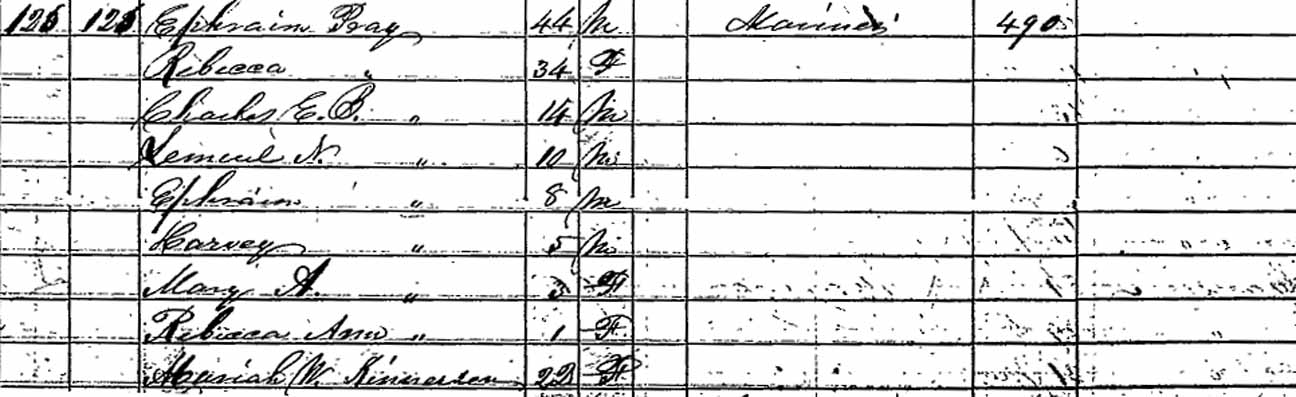 125 125 Ephraim Bray 44 M Mariner 490
Rebecca " 34 F
Charles E. B. " 14 M
Lemuel N. " 10 M
Ephraim " 8 M
Harvey " 5 M
Mary A. " 3 F
Rebecca Ann " 1 F
Mariah W. 22 F